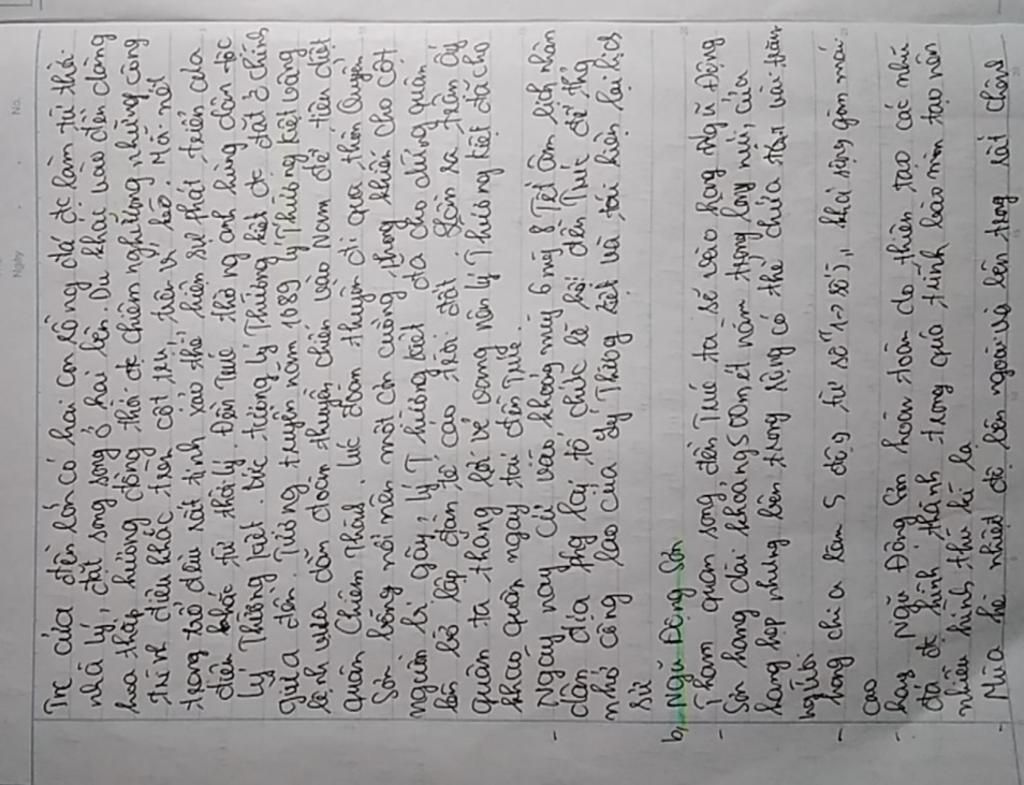 No.
Ngày
Trc cửa đền lớn có hai con rồng đá đc làm từ thời
nhà lý, đặt song song ở hai bên. Du khách vào đền dâng
hoa thắp hương đồng thời đc chiêm ngưỡng những công
trình điêu khắc trên cột trụ, trên vì kèo. Mỗi nét
trang trí đều rất tinh xảo thể hiện sự phát triển của
điêu khắc từ thời lý. Đền Trúc thờ ng anh hùng dân tộc
Lý Thường kiệt. bức tượng Lý Thường kiệt đc đặt ở chính
giữa đền. Tương truyền năm 1089 lý Thường kiệt vâng
lệnh vua dẫn đoàn thuyền chiến vào Nam để tiễn diệt
quân Chiêm Thành. lúc đoàn thuyền đi qua thôn Quyển
Sơn bỗng nổi nên một cơn cuồng phong khiến cho cột
nguồn bị gãy. Lý Thường kiệt đã cho dừng quân
lên bờ lập đàn tế cáo trời đất. Sau ra trận ấy
quân ta thắng lợi vẻ vang nên lý Thường kiệt đã cho
khao quân ngay tại đền Trúc.
- Ngày nay cứ vào khoảng mùng 6 mùng 8 Tết âm lịch nhân
dân địa phg lại tổ chức lễ hội đền Trúc để tg
nhớ công lao của Lý Thường kiệt và tái hiện lại lịch
sử
b, Ngũ Động Sơn
- Tham quan song, đền Trúc ta sẽ vào hang ngũ Động
Sơn hang dài khoảng 500 mét nằm trong lòng núi, cửa
hang hẹp nhưng bên trong rộng có thể chứa tận vài trăm
người
- hang chia làm 5 động từ số 1 -> số 5, khá rộng gồm mái
cao
- hay Ngũ Động Sơn hoàn toàn do thiên tạo các nhũ
đá đc hình thành trong quá trình bào mòn tạo nên
nhiều hình thù kì lạ
- Mùa hè nhiệt độ bên ngoài và bên trog rất chênh